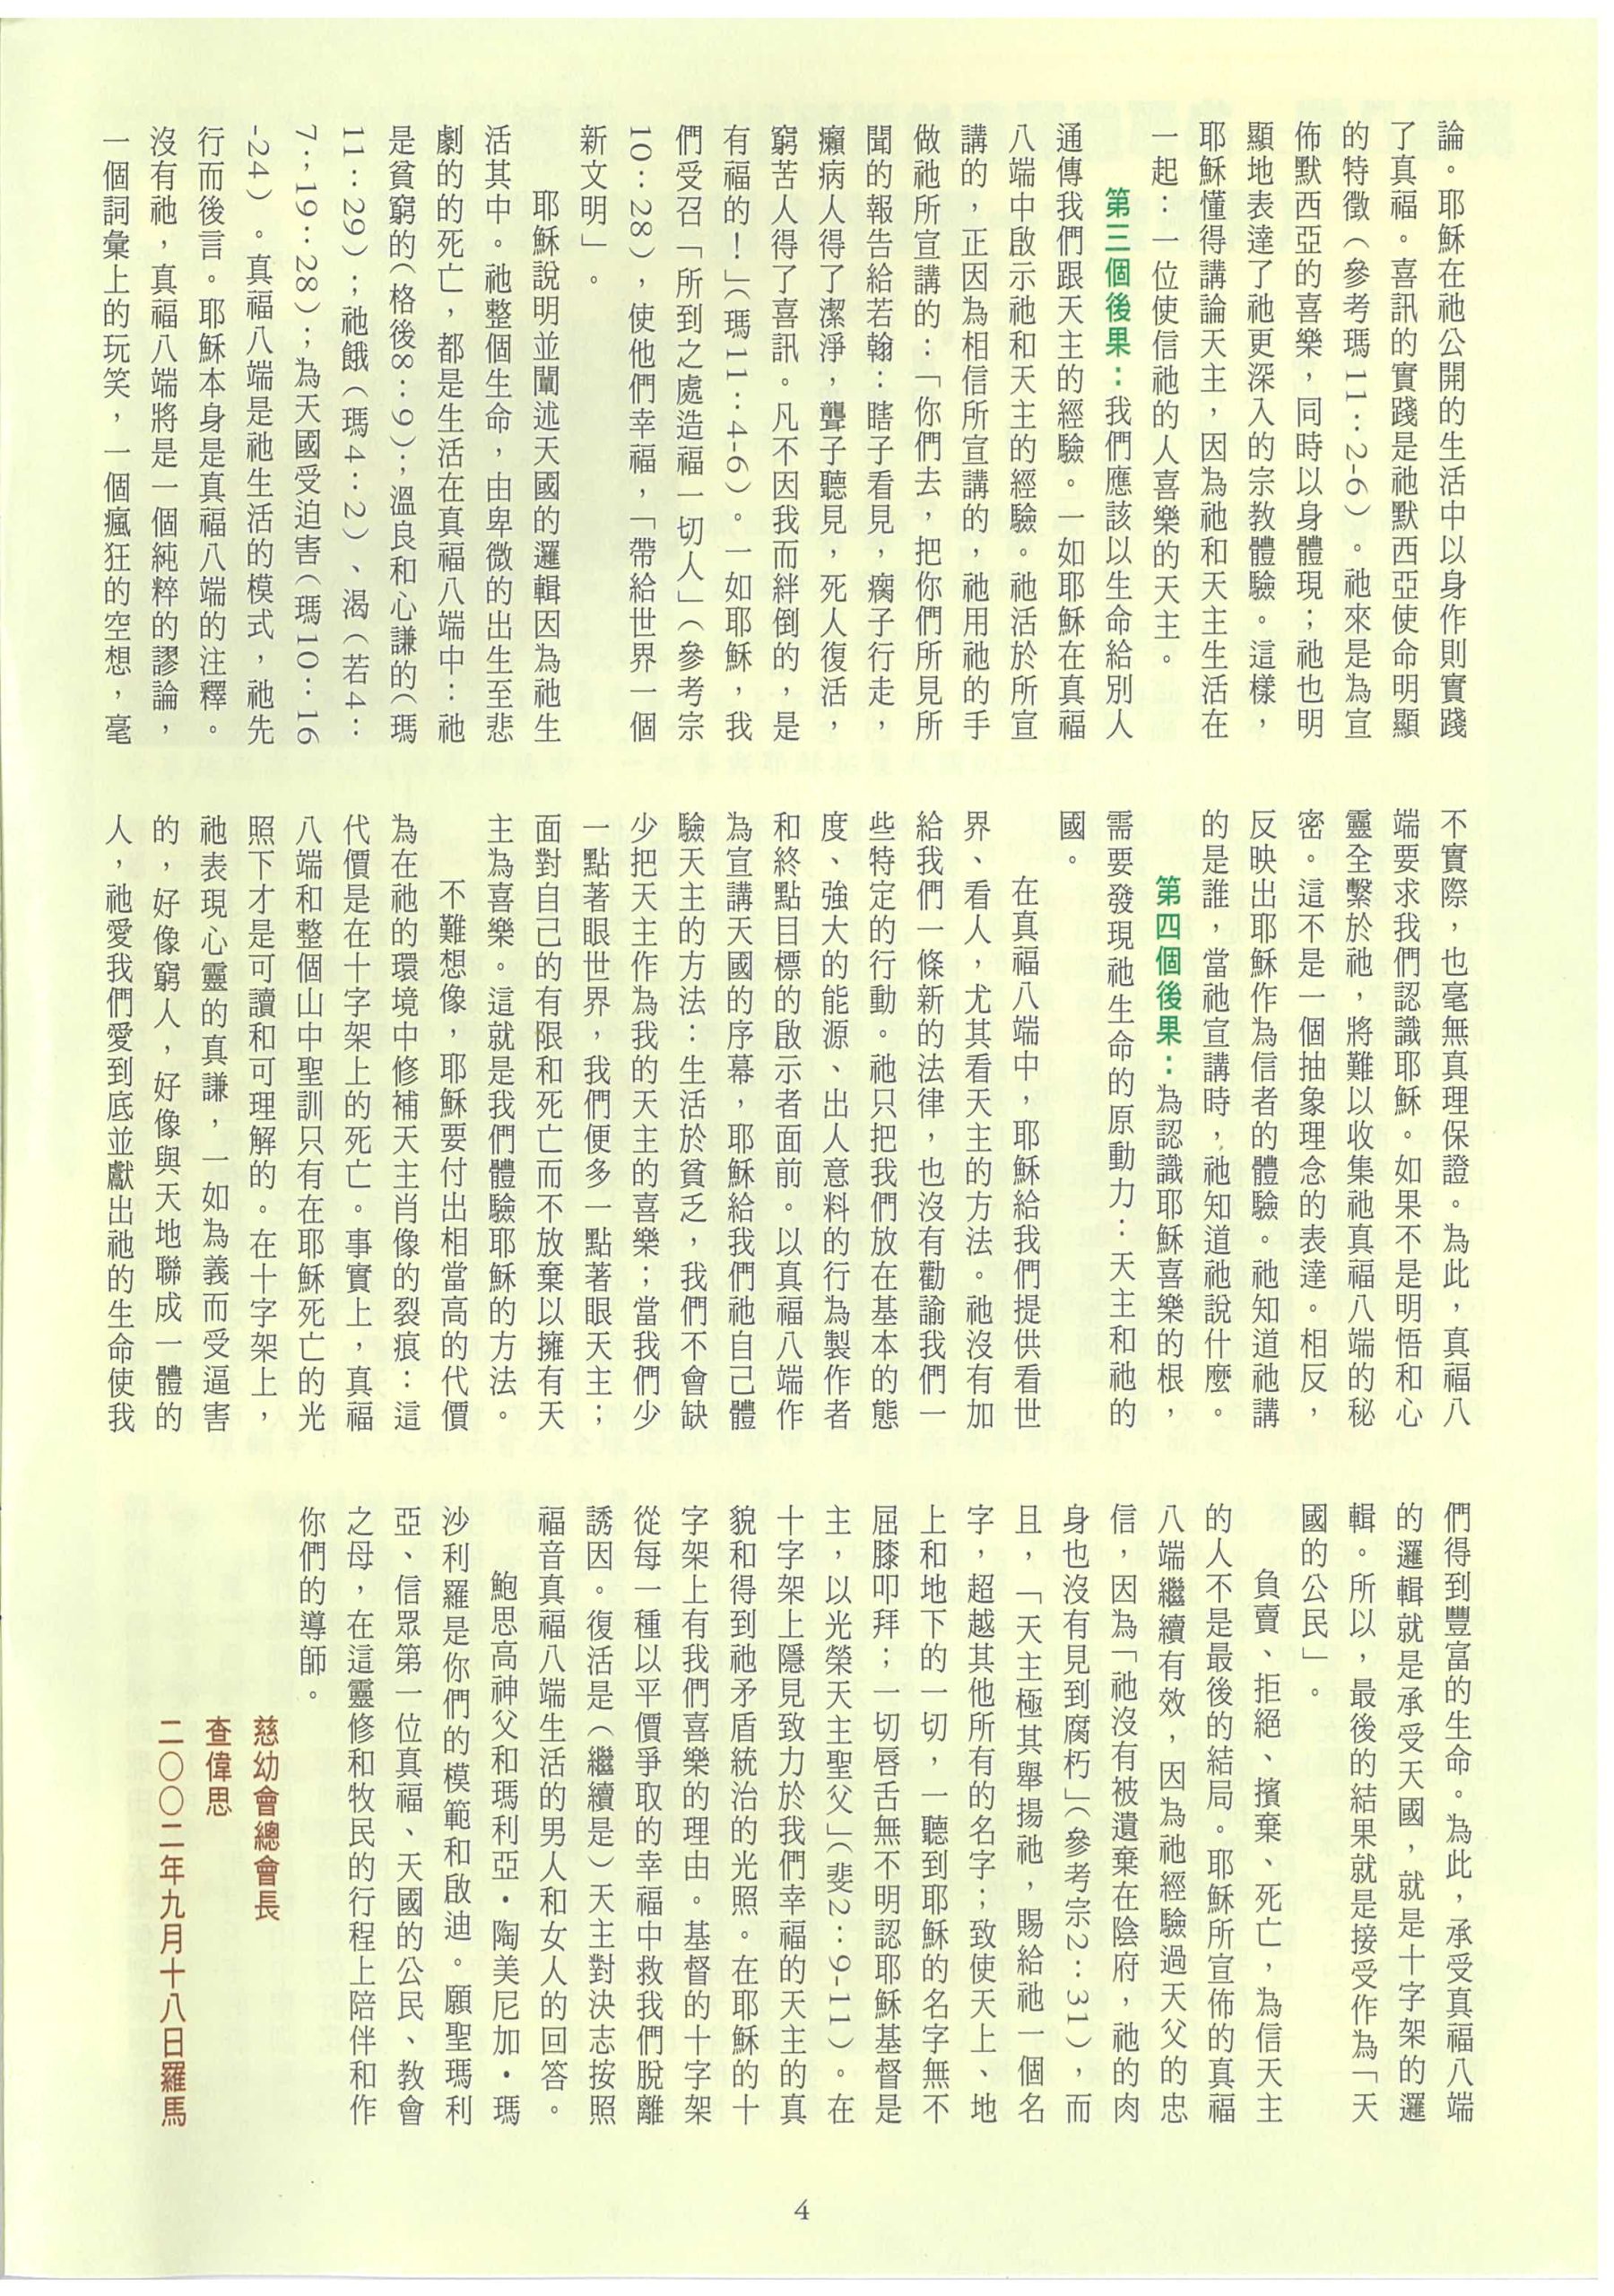 論。耶穌在祂公開的生活中以身作則實踐
了真福。喜訊的實踐是祂默西亞使命明顯
的特徵（參考瑪11：2-6）。祂來是為宣
佈默西亞的喜樂，同時以身體現；祂也明
顯地表達了祂更深入的宗教體驗。這樣，
耶穌懂得講論天主，因為祂和天主生活在
一起：一位使信祂的人喜樂的天主。
第三個後果：我們應該以生命給別人
通傳我們跟天主的經驗。一如耶穌在真福
八端中啟示祂和天主的經驗。祂活於所宣
講的，正因為相信所宣講的，祂用祂的手
做祂所宣講的：「你們去，把你們所見所
聞的報告給若翰：瞎子看見，瘸子行走，
癩病人得了潔淨，聾子聽見，死人復活，
窮苦人得了喜訊。凡不因我而絆倒的，是
有福的！」（瑪11：4-6）。一如耶穌，我
們受召「所到之處造福一切人」（參考宗
10：28），使他們幸福，「帶給世界一個
新文明」。
耶穌說明並闡述天國的邏輯因為祂生
活其中。祂整個生命，由卑微的出生至悲
劇的的死亡，都是生活在真福八端中：祂
是貧窮的（格後8：9）；溫良和心謙的（瑪
11：29）；祂餓（瑪4：2）、渴（若4：
7；19：28）；為天國受迫害（瑪10：16
-24）。真福八端是祂生活的模式，祂先
行而後言。耶穌本身是真福八端的注釋。
沒有祂，真福八端將是一個純粹的謬論，
一個詞彙上的玩笑，一個瘋狂的空想，毫
不實際，也毫無真理保證。為此，真福八
端要求我們認識耶穌。如果不是明悟和心
靈全繫於祂，將難以收集祂真福八端的秘
密。這不是一個抽象理念的表達。相反，
反映出耶穌作為信者的體驗。祂知道祂講
的是誰，當祂宣講時，祂知道祂說什麼。
第四個後果：為認識耶穌喜樂的根，
需要發現祂生命的原動力：天主和祂的
國。
在真福八端中，耶穌給我們提供看世
界、看人，尤其看天主的方法。祂沒有加
給我們一條新的法律，也沒有勸諭我們一
些特定的行動。祂只把我們放在基本的態
度、強大的能源、出人意料的行為製作者
和終點目標的啟示者面前。以真福八端作
為宣講天國的序幕，耶穌給我們祂自己體
驗天主的方法：生活於貧乏，我們不會缺
少把天主作為我的天主的喜樂；當我們少
一點著眼世界，我們便多一點著眼天主；
面對自己的有限和死亡而不放棄以擁有天
主為喜樂。這就是我們體驗耶穌的方法。
不難想像，耶穌要付出相當高的代價
為在祂的環境中修補天主肖像的裂痕：這
代價是在十字架上的死亡。事實上，真福
八端和整個山中聖訓只有在耶穌死亡的光
照下才是可讀和可理解的。在十字架上，
祂表現心靈的真謙，一如為義而受逼害
的，好像窮人，好像與天地聯成一體的
人，祂愛我們愛到底並獻出祂的生命使我
們得到豐富的生命。為此，承受真福八端
的邏輯就是承受天國，就是十字架的邏
輯。所以，最後的結果就是接受作為「天
國的公民」。
負賣、拒絕、擯棄、死亡，為信天主
的人不是最後的結局。耶穌所宣佈的真福
八端繼續有效，因為祂經驗過天父的忠
信，因為「祂沒有被遺棄在陰府，祂的肉
身也沒有見到腐朽」（參考宗2：31），而
且，「天主極其舉揚祂，賜給祂一個名
字，超越其他所有的名字；致使天上、地
上和地下的一切，一聽到耶穌的名字無不
屈膝叩拜；一切唇舌無不明認耶穌基督是
主，以光榮天主聖父」（斐2：9-11）。在
十字架上隱見致力於我們幸福的天主的真
貌和得到祂矛盾統治的光照。在耶穌的十
字架上有我們喜樂的理由。基督的十字架
從每一種以平價爭取的幸福中救我們脫離
誘因。復活是（繼續是）天主對決志按照
福音真福八端生活的男人和女人的回答。
鮑思高神父和瑪利亞・陶美尼加・瑪
沙利羅是你們的模範和啟迪。願聖瑪利
亞、信眾第一位真福、天國的公民、教會
之母，在這靈修和牧民的行程上陪伴和作
你們的導師。
慈幼會總會長
查偉思
二〇〇二年九月十八日羅馬
4